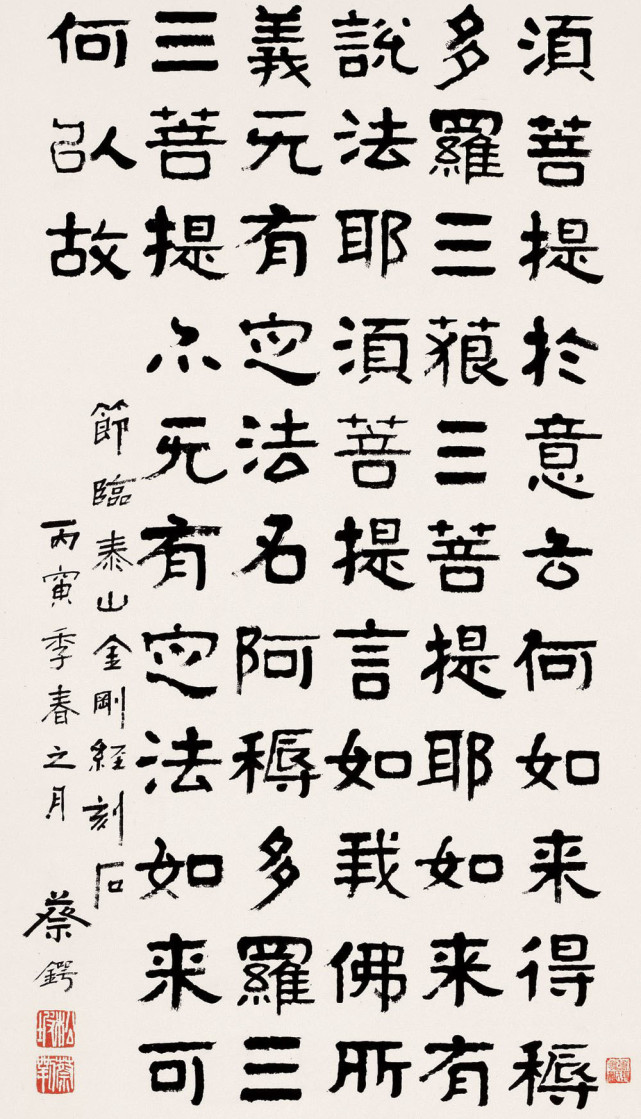 須菩提於意云何如来得耨
多羅三藐三菩提耶如来有
說法耶須菩提言如我佛所
義无有定法名阿耨多羅三
三菩提亦无有定法如来可
何以故
節臨泰山金剛経刻石
丙寅季春之月 蔡鍔
松坡